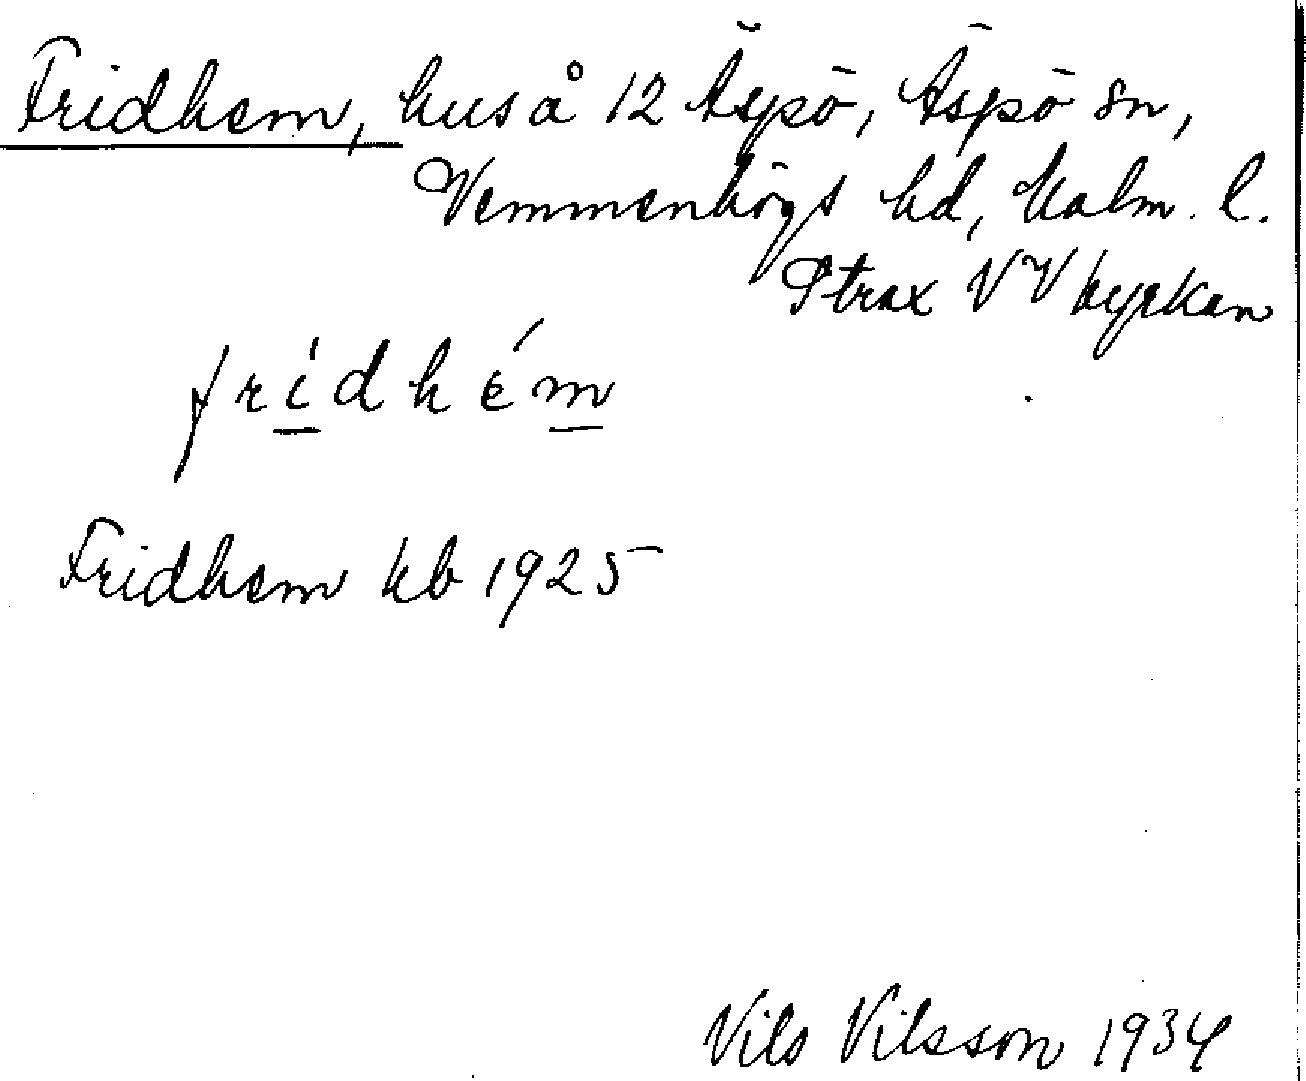 Fridhem, hus å 12 Äspö, Äspö sn,
Vemmenhögs hd, Malm. l.
Strax NV kyrkan
fridhém
Fridhem kb 1925
Nils Nilsson 1934